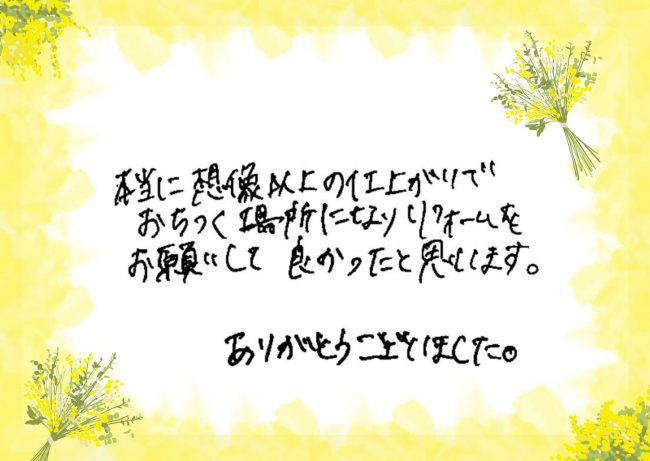 本当に想像以上の仕上がりで
おちつく場所になりリフォームを
お願いして良かったと思います。
ありがとうございました。